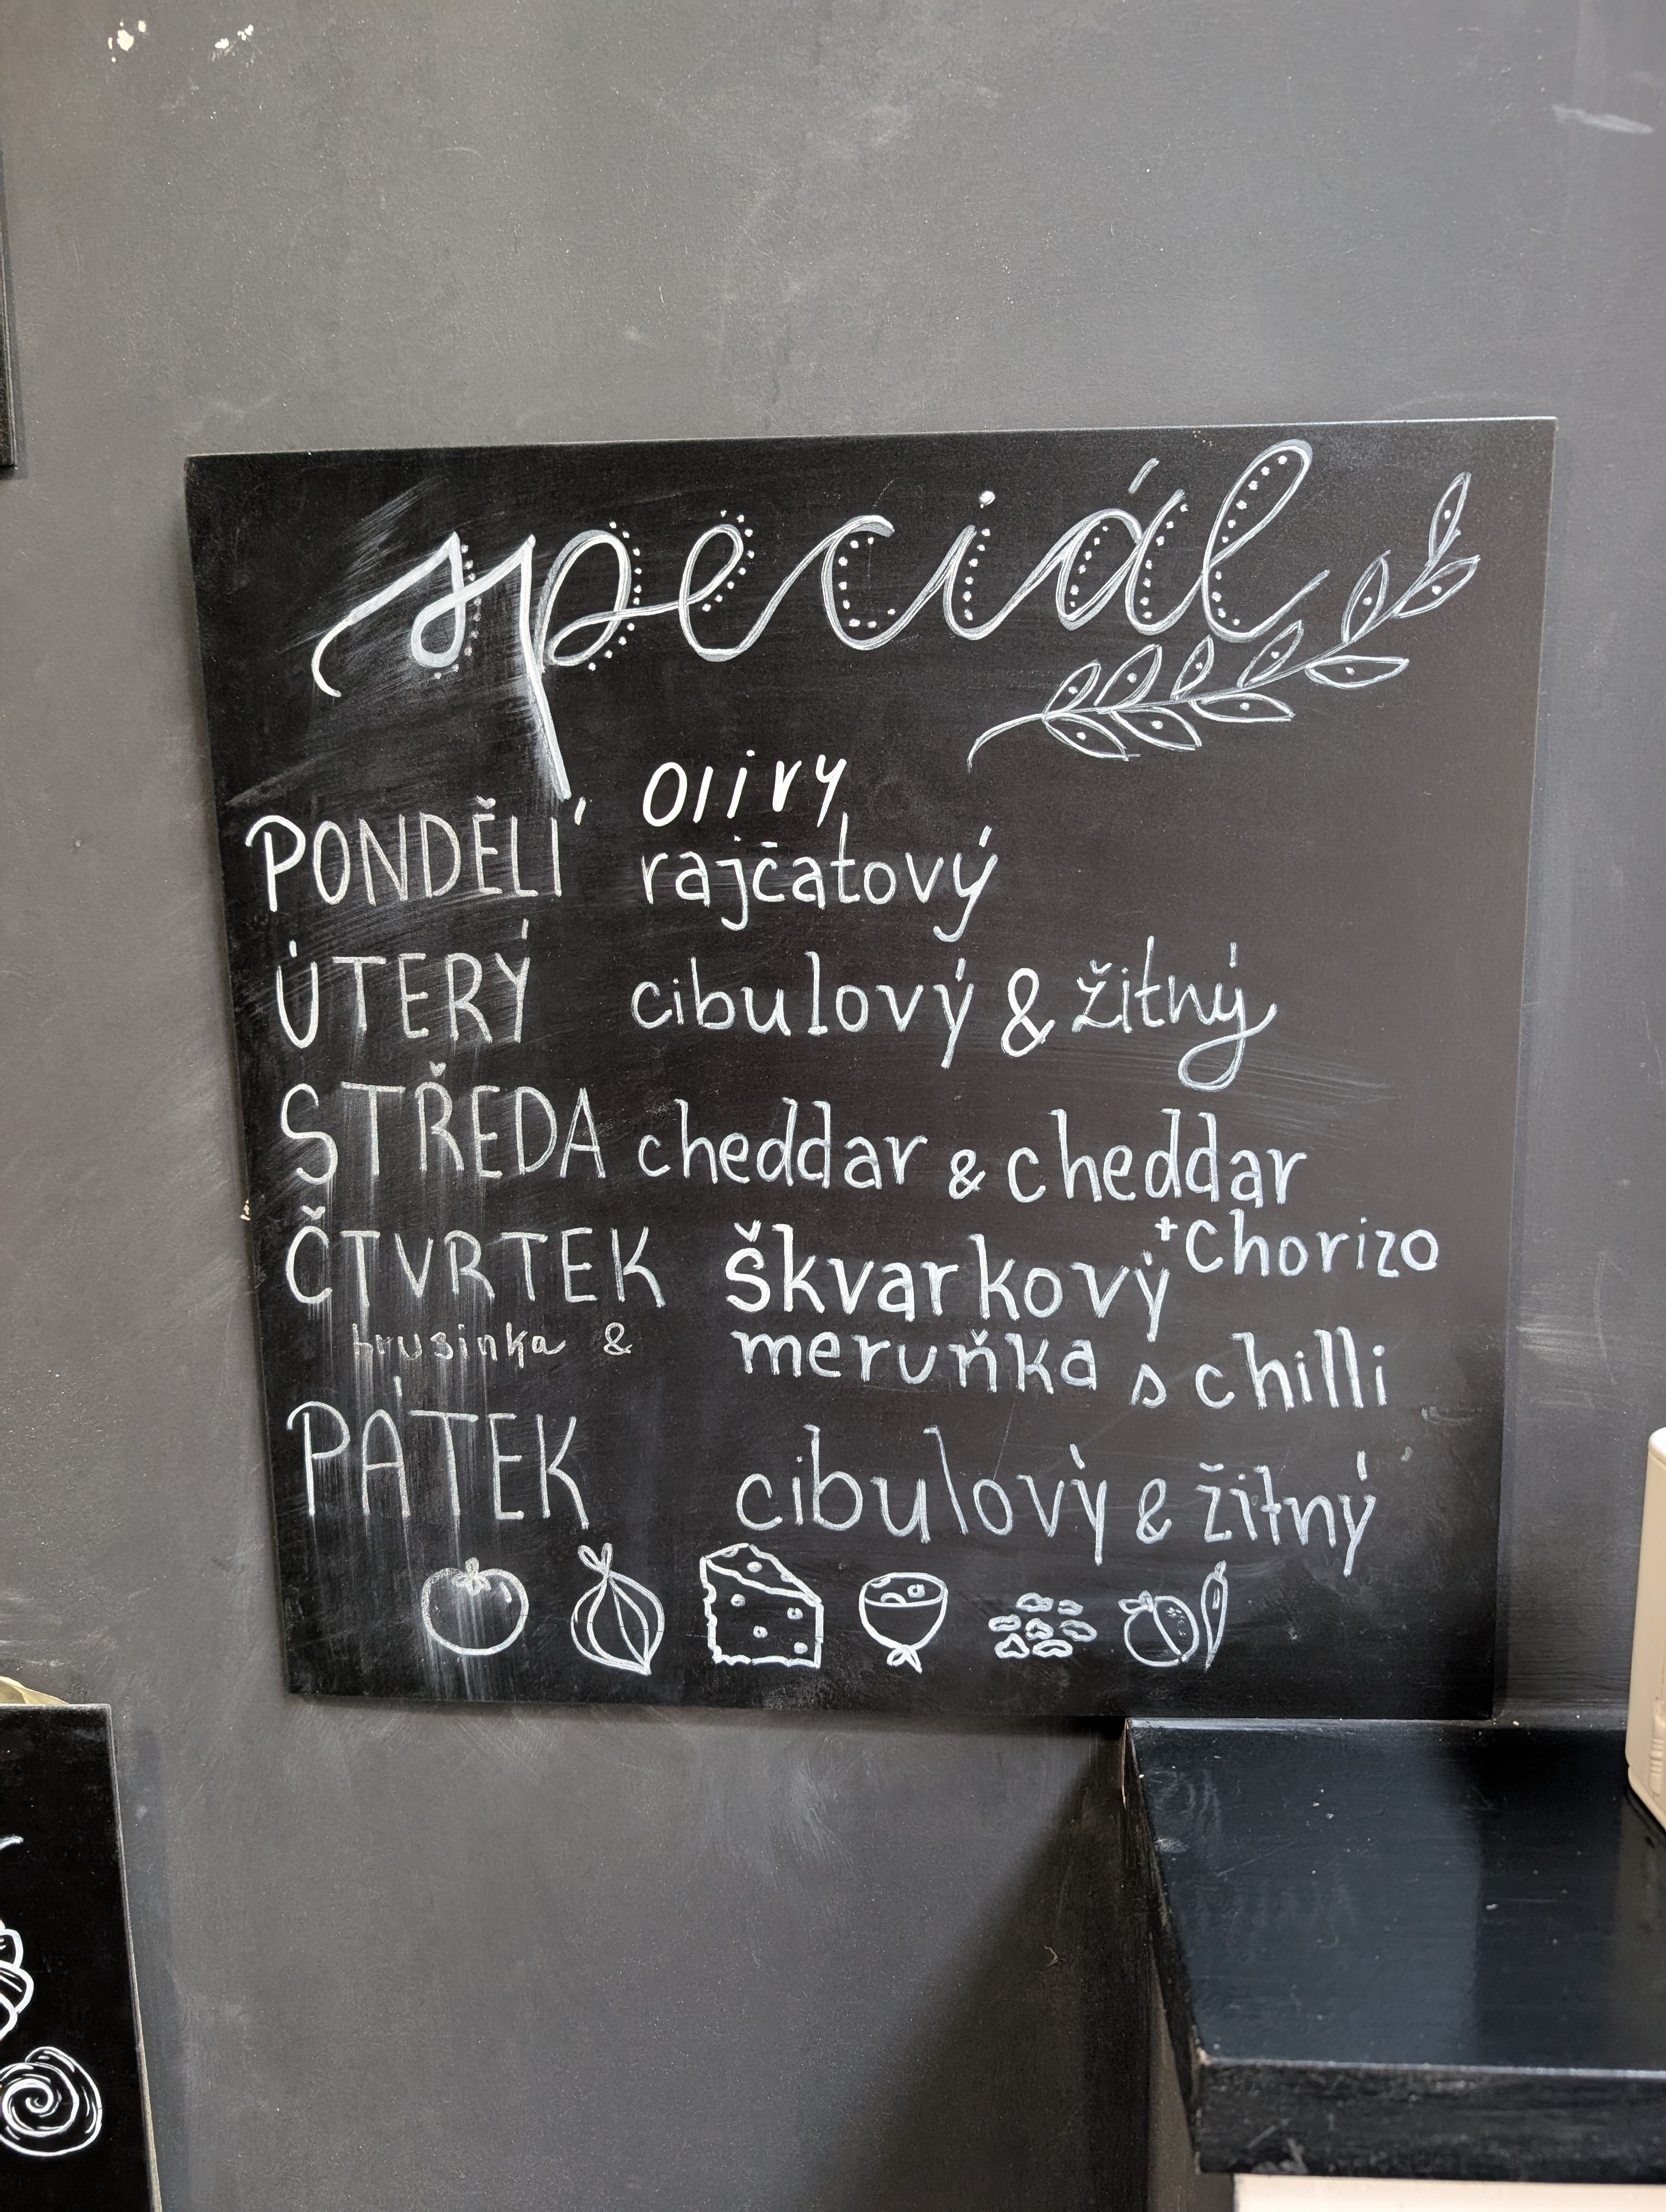 speciál
olivy
PONDĚLÍ rajčatový
ÚTERÝ cibulový & žitný
STŘEDA cheddar & cheddar
+chorizo
ČTVRTEK škvarkový
brusinka & meruňka s chilli
PÁTEK cibulový & žitný